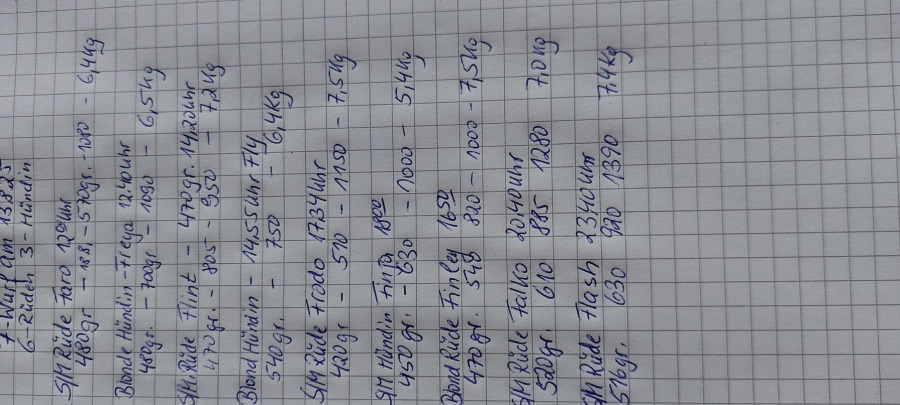 7-Wurf am 13.8.25
6-Rüden 3-Hündin
S/M Rüde Faro 12⁰⁰ Uhr
480gr - 18.8.-570gr. -1080 - 6,4Kg
Blonde Hündin-Freya 12.40Uhr
480gr. - 700gr - 1090 - 6,5Kg
S/M Rüde Flint - 470gr. 14,20Uhr
470gr. - 805 - 950 - 7,2Kg
Blond Hündin - 14,55Uhr Fly
540gr. - 750 - 6,4Kg
S/M Rüde Frodo 17.34Uhr
420gr - 510 - 1150 - 7,5Kg
S/M Hündin Finja 18⁰⁰
450gr. - 630 - 1000 - 5,4Kg
Blond Rüde Finley 16⁵⁰
470gr. 548 820 - 1000 - 7,5Kg
S/M Rüde Falko 20.40Uhr
520gr. 610 885 1280 7,0Kg
S/M Rüde Flash 23,40Uhr
516gr. 630 920 1390 7,4Kg